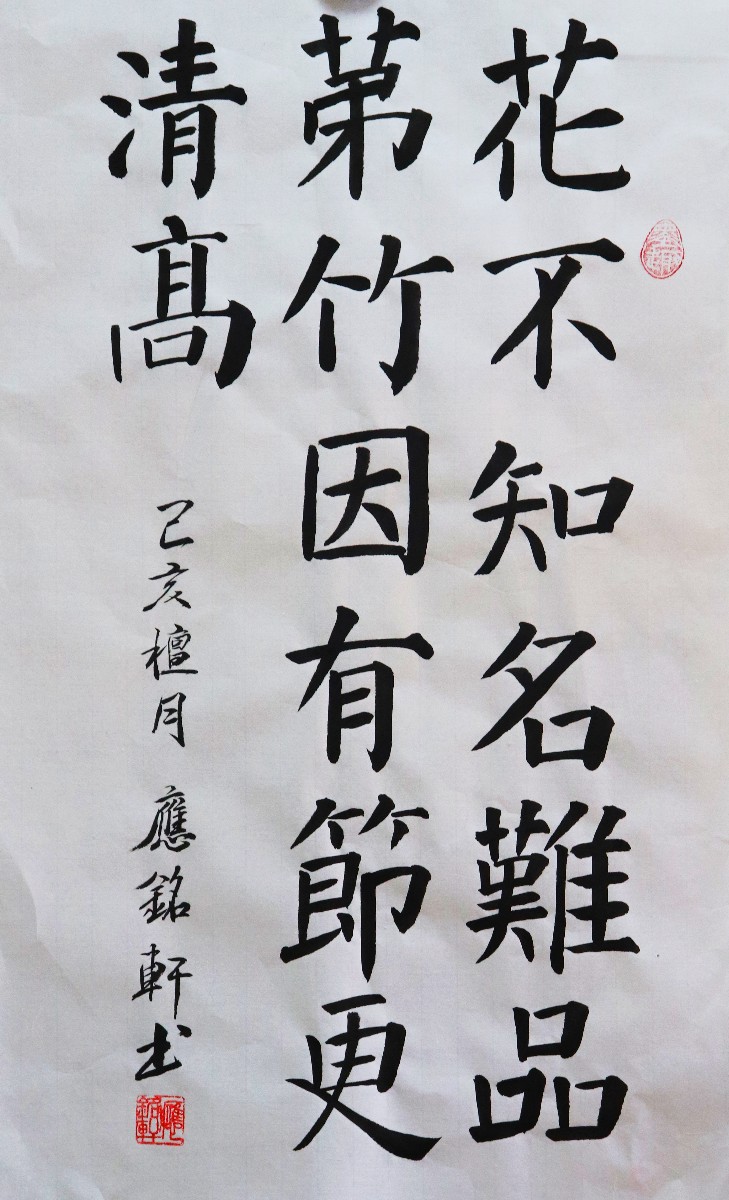 花不知名難品
苐竹因有節更
清髙
己亥檀月 應銘軒书